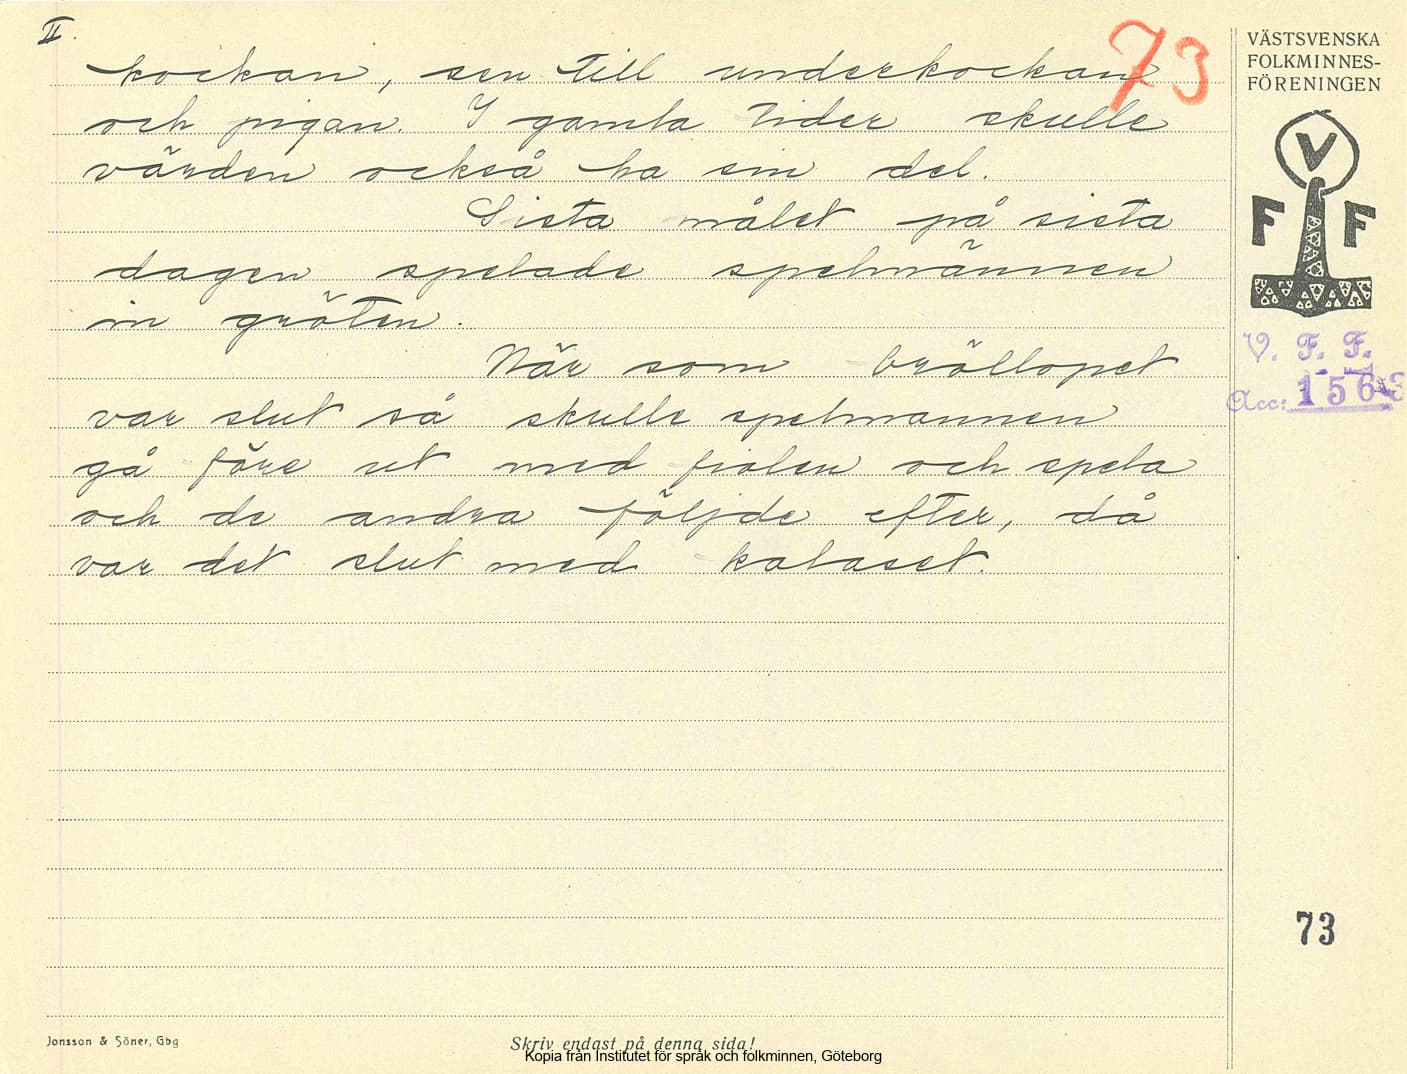 II.
73
kockan, sen till underkockan
och pigan. I gamla tider skulle
värden också ha sin del.
Sista målet på sista
dagen spelade spelmännen
in gröten.
När som bröllopet
var slut så skulle spelmannen
gå före ut med fiolen och spela
och de andra följde efter, då
var det slut med kalaset.
VÄSTSVENSKA
FOLKMINNES-
FÖRENINGEN
V
F F
V. F. F.
Acc: 1563
73
Jonsson & Söner, Gbg
Skriv endast på denna sida!
Kopia från Institutet för språk och folkminnen, Göteborg